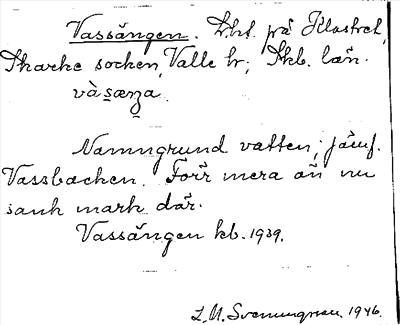 Vassängen. Lht. på Klostret,
Skarke socken, Valle hr; Skb. län.
vàsæŋa.
Namngrund vatten; jämf.
Vassbacken. Förr mera än nu
sank mark där.
Vassängen kb. 1939.
L. M. Svenungsson. 1946.